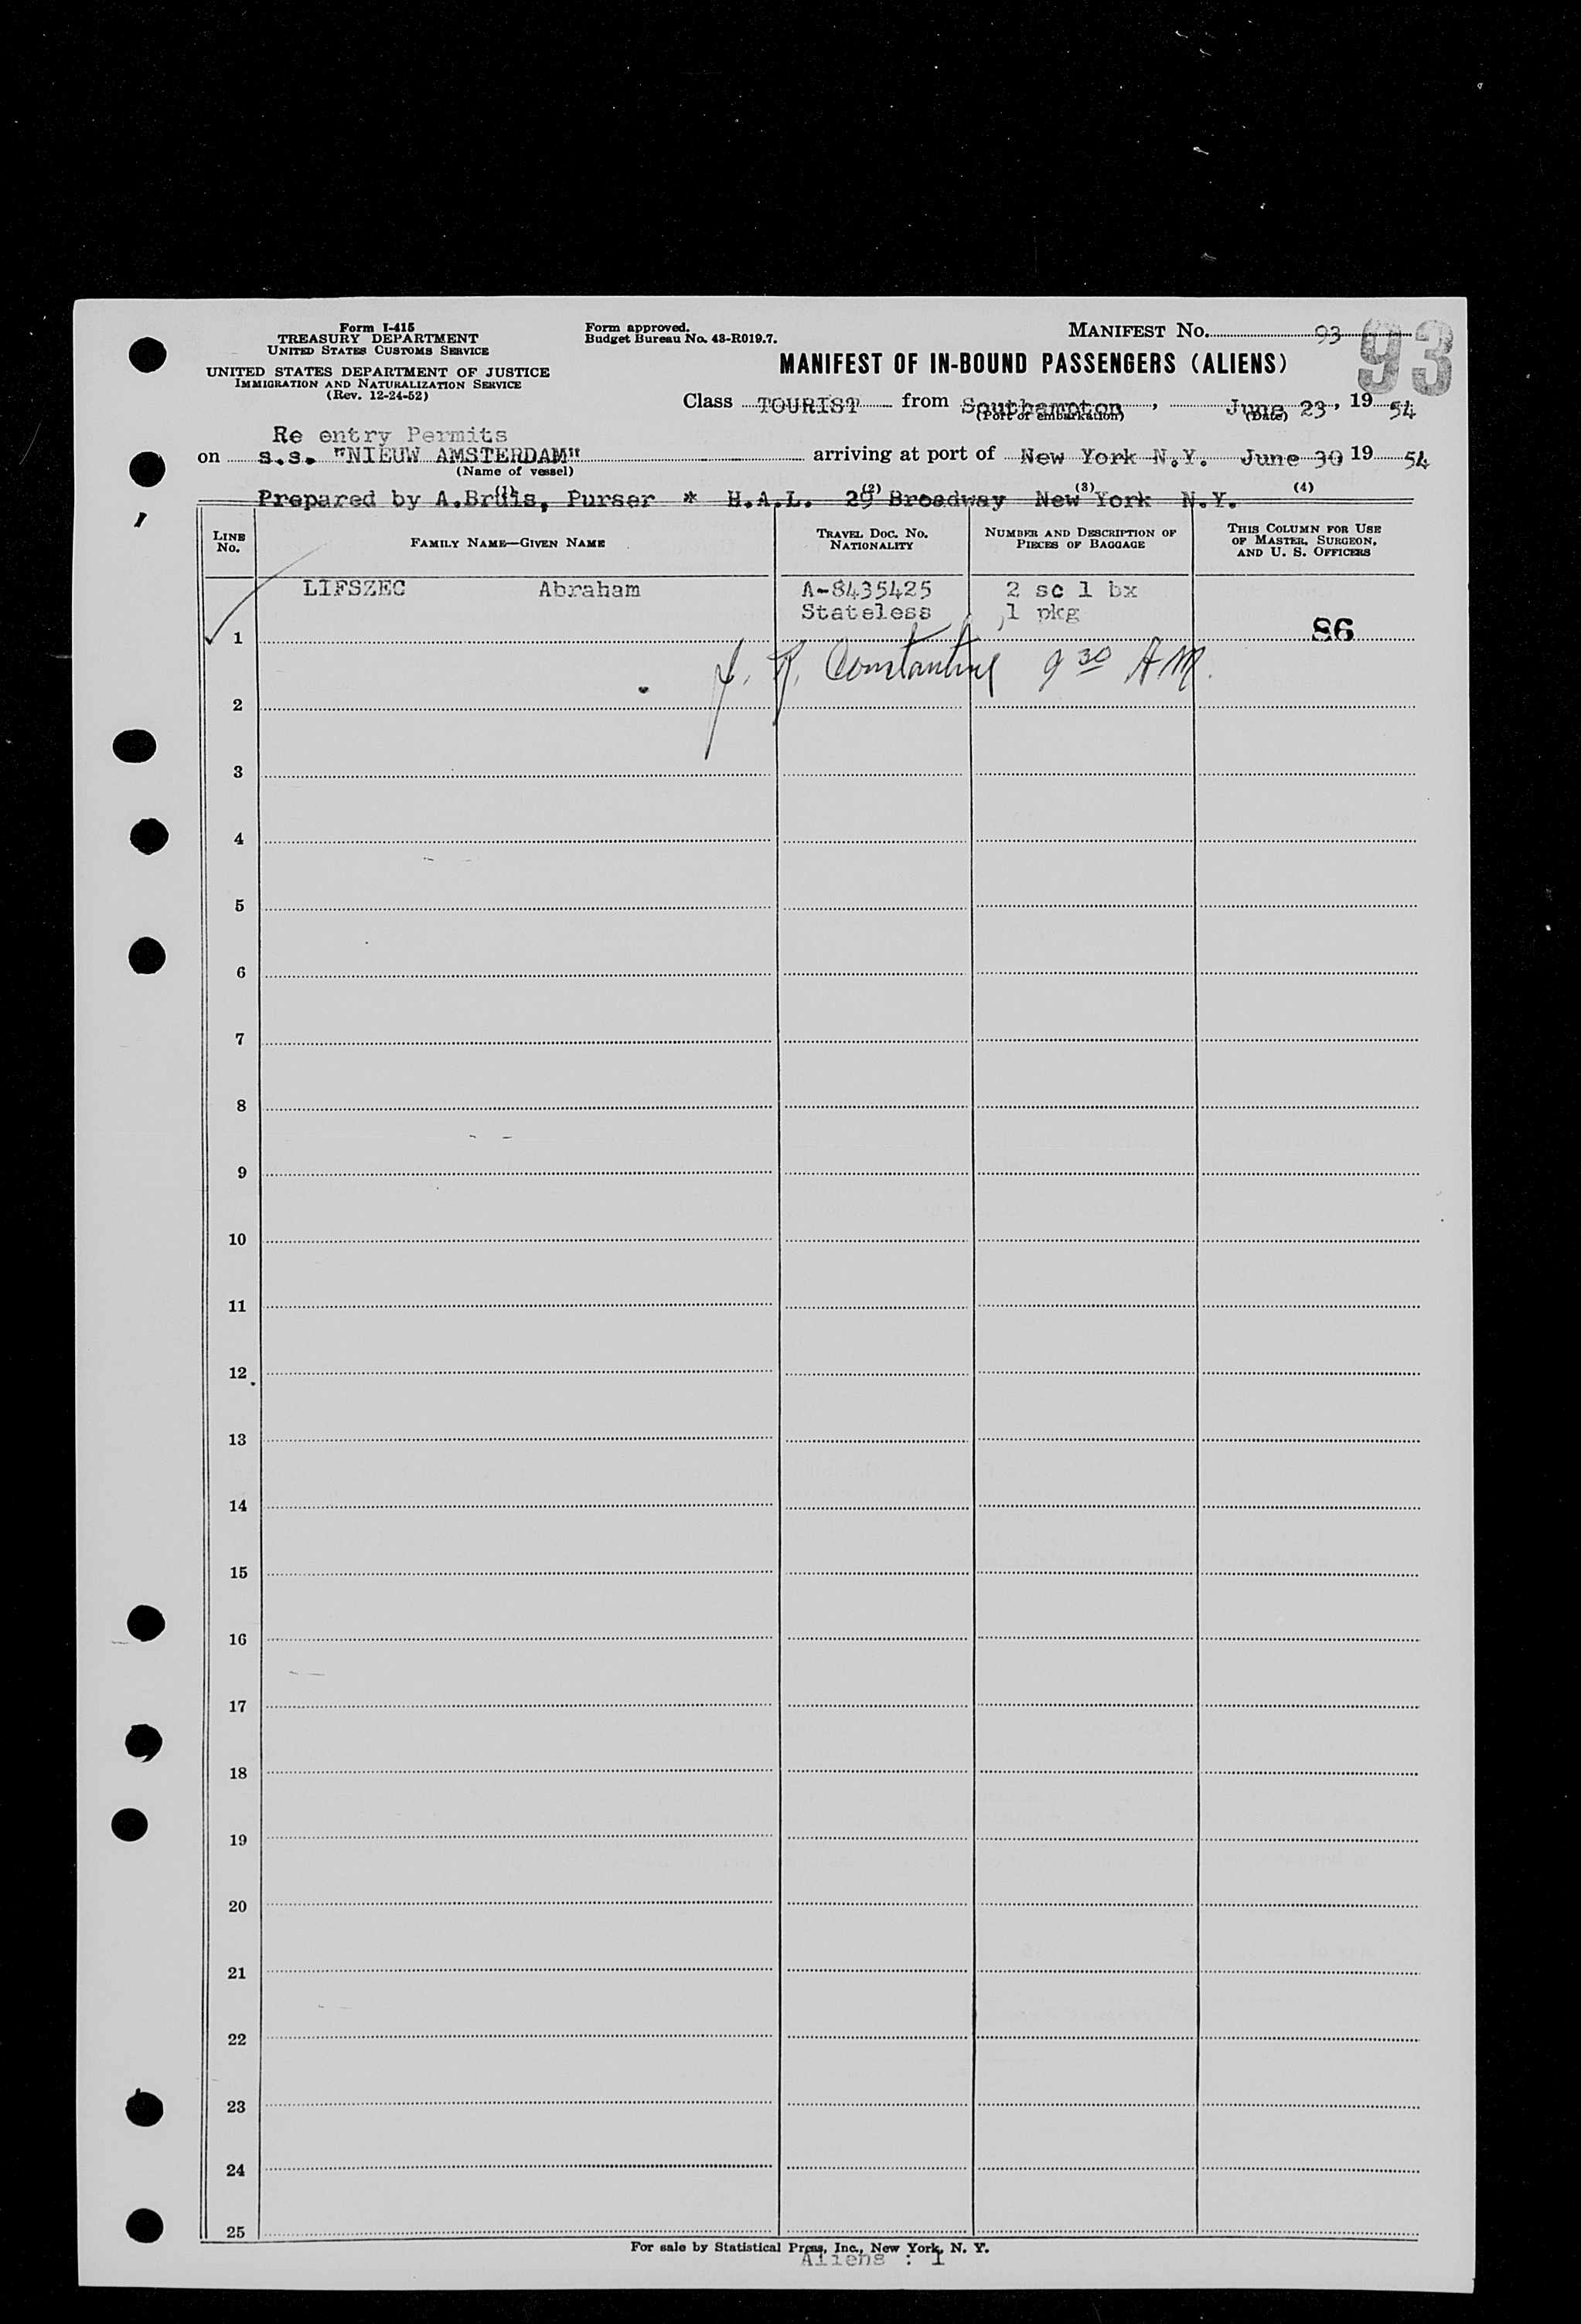 Form I-415
TREASURY DEPARTMENT
UNITED STATES CUSTOMS SERVICE
UNITED STATES DEPARTMENT OF JUSTICE
IMMIGRATION AND NATURALIZATION SERVICE
(Rev. 12-24-52)
Form approved.
Budget Bureau No. 43-R019.7.
MANIFEST No. 93
93
MANIFEST OF IN-BOUND PASSENGERS (ALIENS)
Class TOURIST from Southampton, June 23, 19 54
(Port of embarkation) (Date)
Re entry Permits
on s.s. "NIEUW AMSTERDAM" arriving at port of New York N.Y. June 30 19 54
(Name of vessel)
(1) (2) (3) (4)
Prepared by A.Bruis, Purser * H.A.L. 29 Broadway New York N.Y.
LINE No. FAMILY NAME—GIVEN NAME TRAVEL DOC. NO. NATIONALITY NUMBER AND DESCRIPTION OF PIECES OF BAGGAGE THIS COLUMN FOR USE OF MASTER, SURGEON, AND U. S. OFFICERS
LIFSZEC Abraham A-8435425 2 sc 1 bx
Stateless 1 pkg
1 86
R. Constantine 9 30 AM.
2
3
4
5
6
7
8
9
10
11
12
13
14
15
16
17
18
19
20
21
22
23
24
25
For sale by Statistical Press, Inc., New York, N. Y.
Aliens : 1